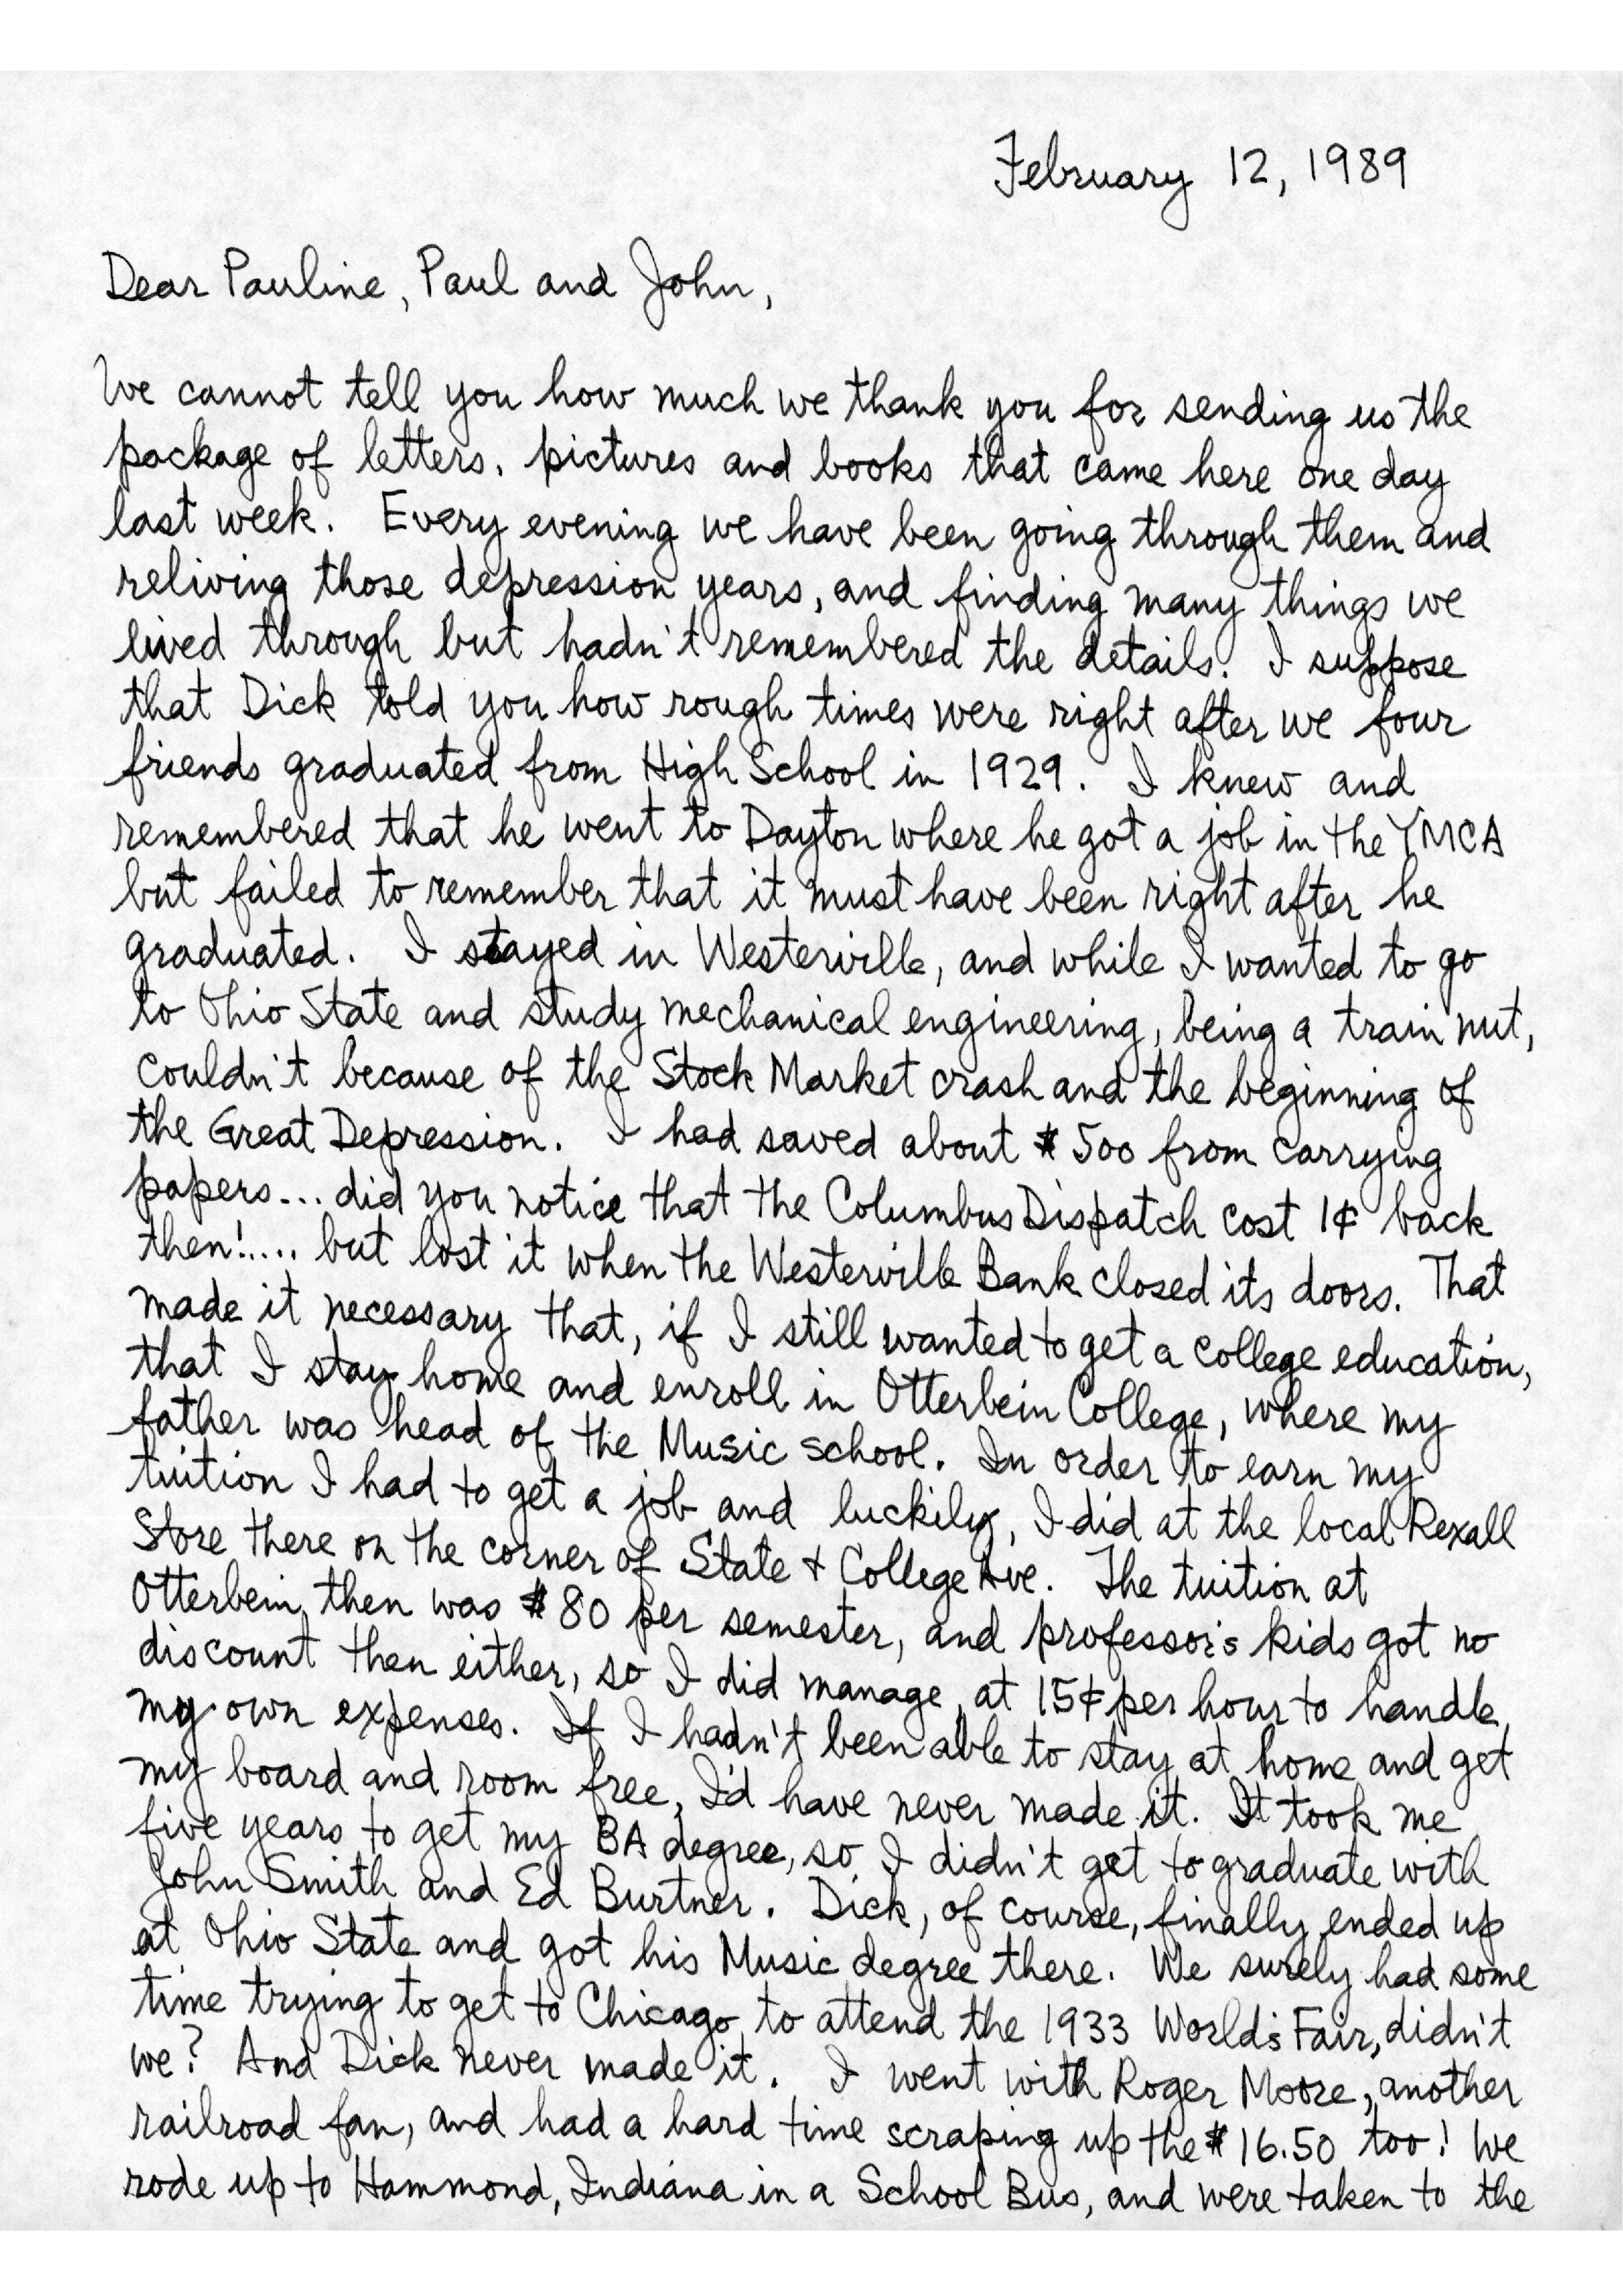 February 12, 1989
Dear Pauline, Paul and John,
We cannot tell you how much we thank you for sending us the
package of letters, pictures and books that came here one day
last week. Every evening we have been going through them and
reliving those depression years, and finding many things we
lived through but hadn't remembered the details. I suppose
that Dick told you how rough times were right after we four
friends graduated from High School in 1929. I knew and
remembered that he went to Dayton where he got a job in the YMCA
but failed to remember that it must have been right after he
graduated. I stayed in Westerville, and while I wanted to go
to Ohio State and study mechanical engineering, being a train nut,
couldn't because of the Stock Market crash and the beginning of
the Great Depression. I had saved about $500 from carrying
papers... did you notice that the Columbus Dispatch cost 1¢ back
then!.... but lost it when the Westerville Bank closed its doors. That
made it necessary that, if I still wanted to get a college education,
that I stay home and enroll in Otterbein College, where my
father was head of the Music school. In order to earn my
tuition I had to get a job and luckily, I did at the local Rexall
Store there on the corner of State & College Ave. The tuition at
Otterbein then was $80 per semester, and professor's kids got no
discount then either, so I did manage, at 15¢ per hour to handle
my own expenses. If I hadn't been able to stay at home and get
my board and room free, I'd have never made it. It took me
five years to get my BA degree, so I didn't get to graduate with
John Smith and Ed Burtner. Dick, of course, finally ended up
at Ohio State and got his Music degree there. We surely had some
time trying to get to Chicago to attend the 1933 World's Fair, didn't
we? And Dick never made it. I went with Roger Moore, another
railroad fan, and had a hard time scraping up the $16.50 too! We
rode up to Hammond, Indiana in a School Bus, and were taken to the